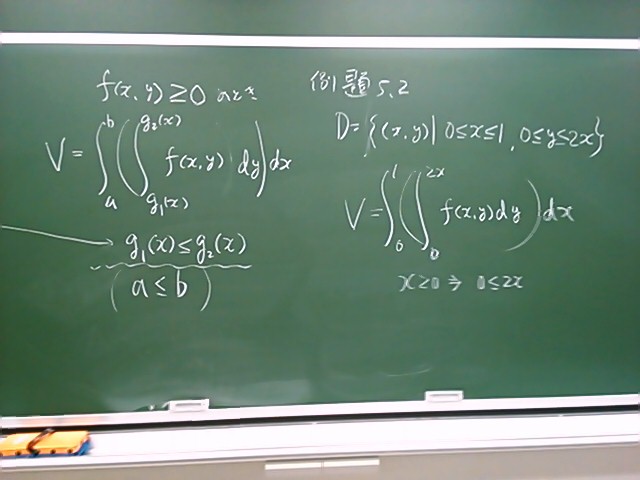 f(x, y) ≥ 0 のとき
V = ∫_a^b ( ∫_{g₁(x)}^{g₂(x)} f(x, y) dy ) dx
g₁(x) ≤ g₂(x)
(a ≤ b)
例題 5.2
D = {(x, y) | 0≤x≤1, 0≤y≤2x}
V = ∫_0^1 ( ∫_0^{2x} f(x, y) dy ) dx
x≥0 ⇒ 0≤2x